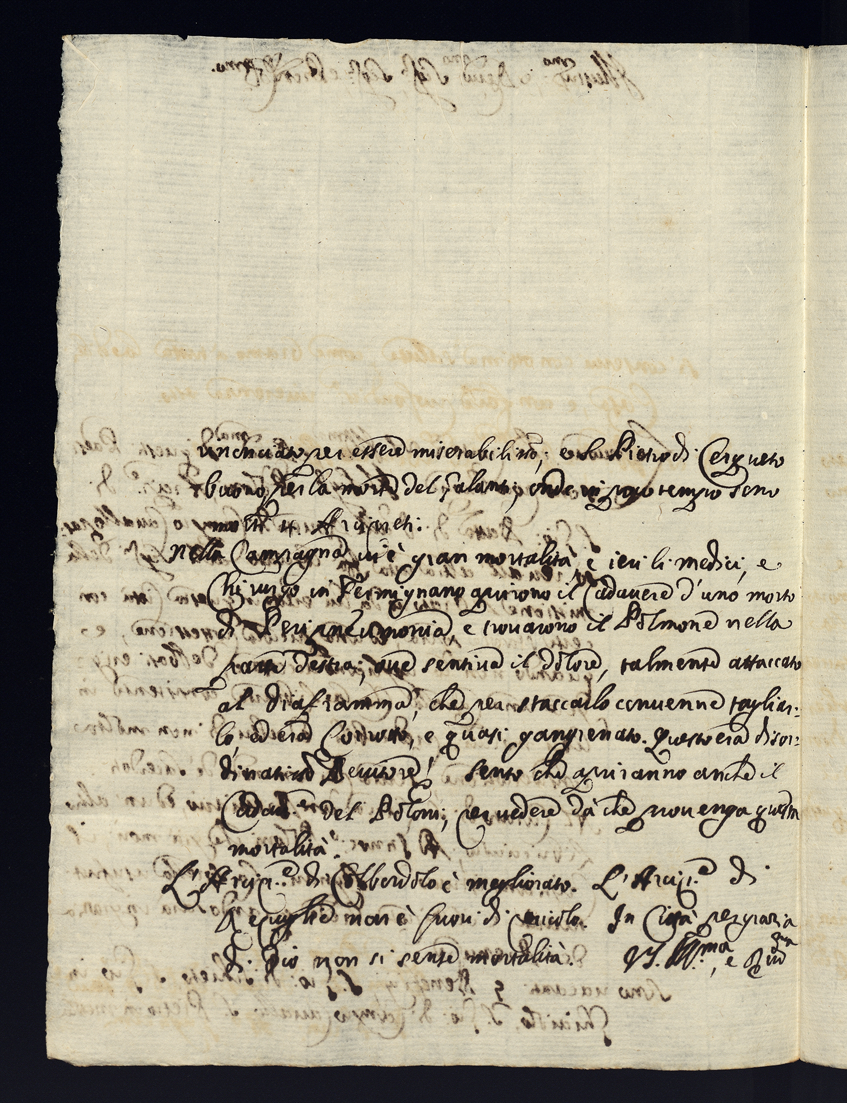 per essere miserabiliss.º; e S. Pietro di Cerqueto
buono per la morte del Galanti, onde in poco tempo sono
morti 4 Arcipreti:
Nella Campagna vi è gran mortalità, e ieri li medici, e
Chirurgo in Fermignano aprirono il Cadavere d'uno morto
di Peripneumonia, e trovarono il Polmone nella
parte destra, ove sentiva il dolore, talmente attaccato
al diaframma, che per staccarlo convenne tagliar-
lo, ed era corrotto, e quasi gangrenato. Questo era disor-
dinatiss.º Bevitore! Sento che apriranno anche il
Cadav.re del Poloni, per vedere da che provenga questa
mortalità.
L'Arcip.e di Colbordolo è megliorato. L'Arcip.e di
non è fuori di pericolo. In Città per grazia
di Dio non si sente mortalità. V.S. Ill.ma, e R.ma